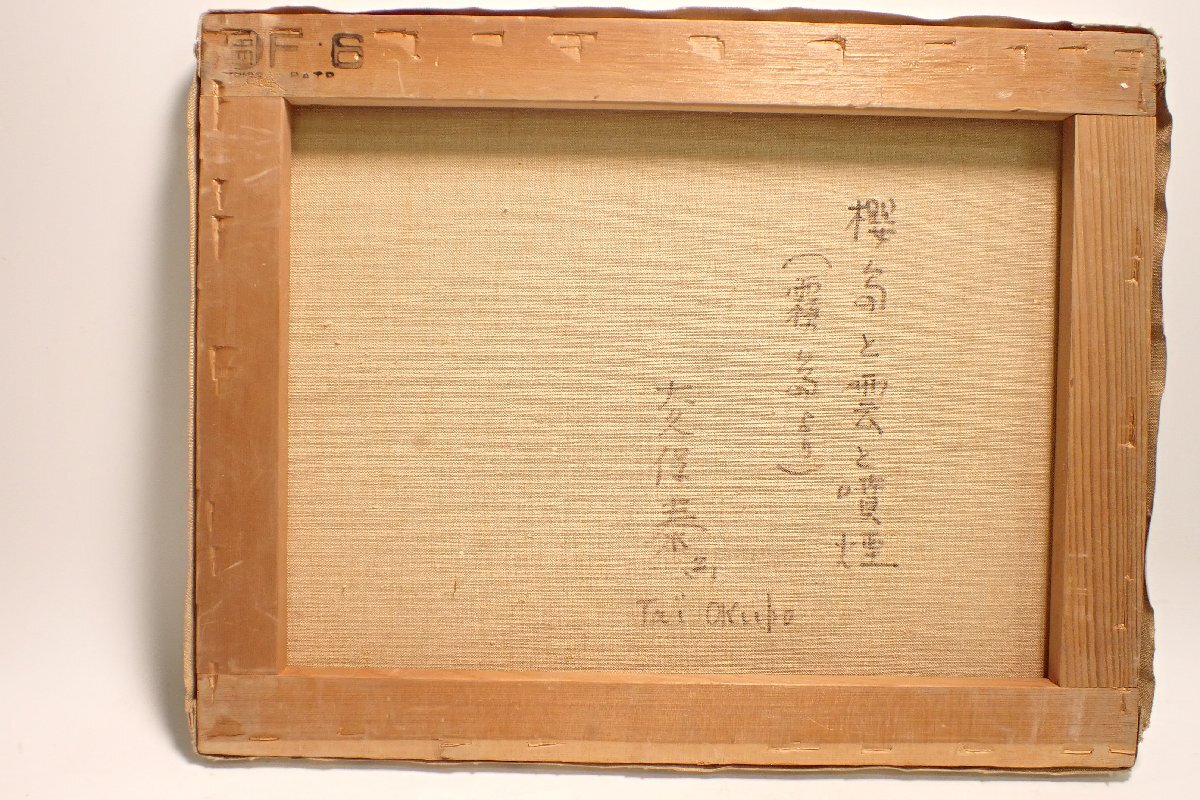 F 6
櫻島と雲と噴煙
(霧島より)
大久保泰
Tai Okubo